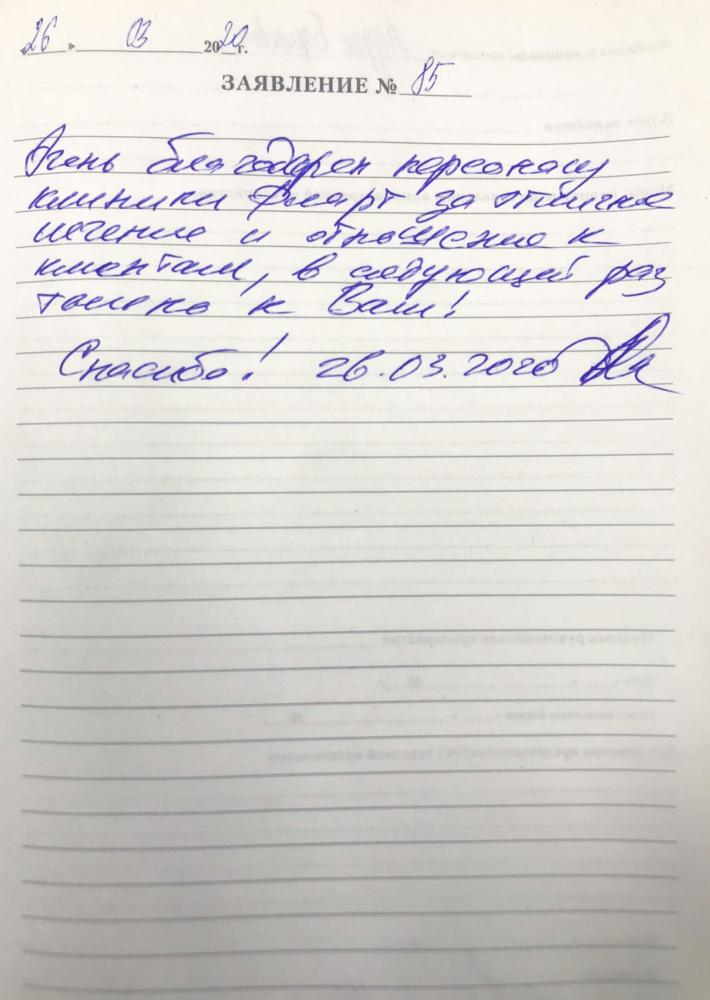 «26» 03 2020г.
ЗАЯВЛЕНИЕ № 85
Очень благодарен персоналу
клиники за отличное
лечение и отношение к
клиентам, в следующий раз
только к Вам!
Спасибо! 26.03.2020